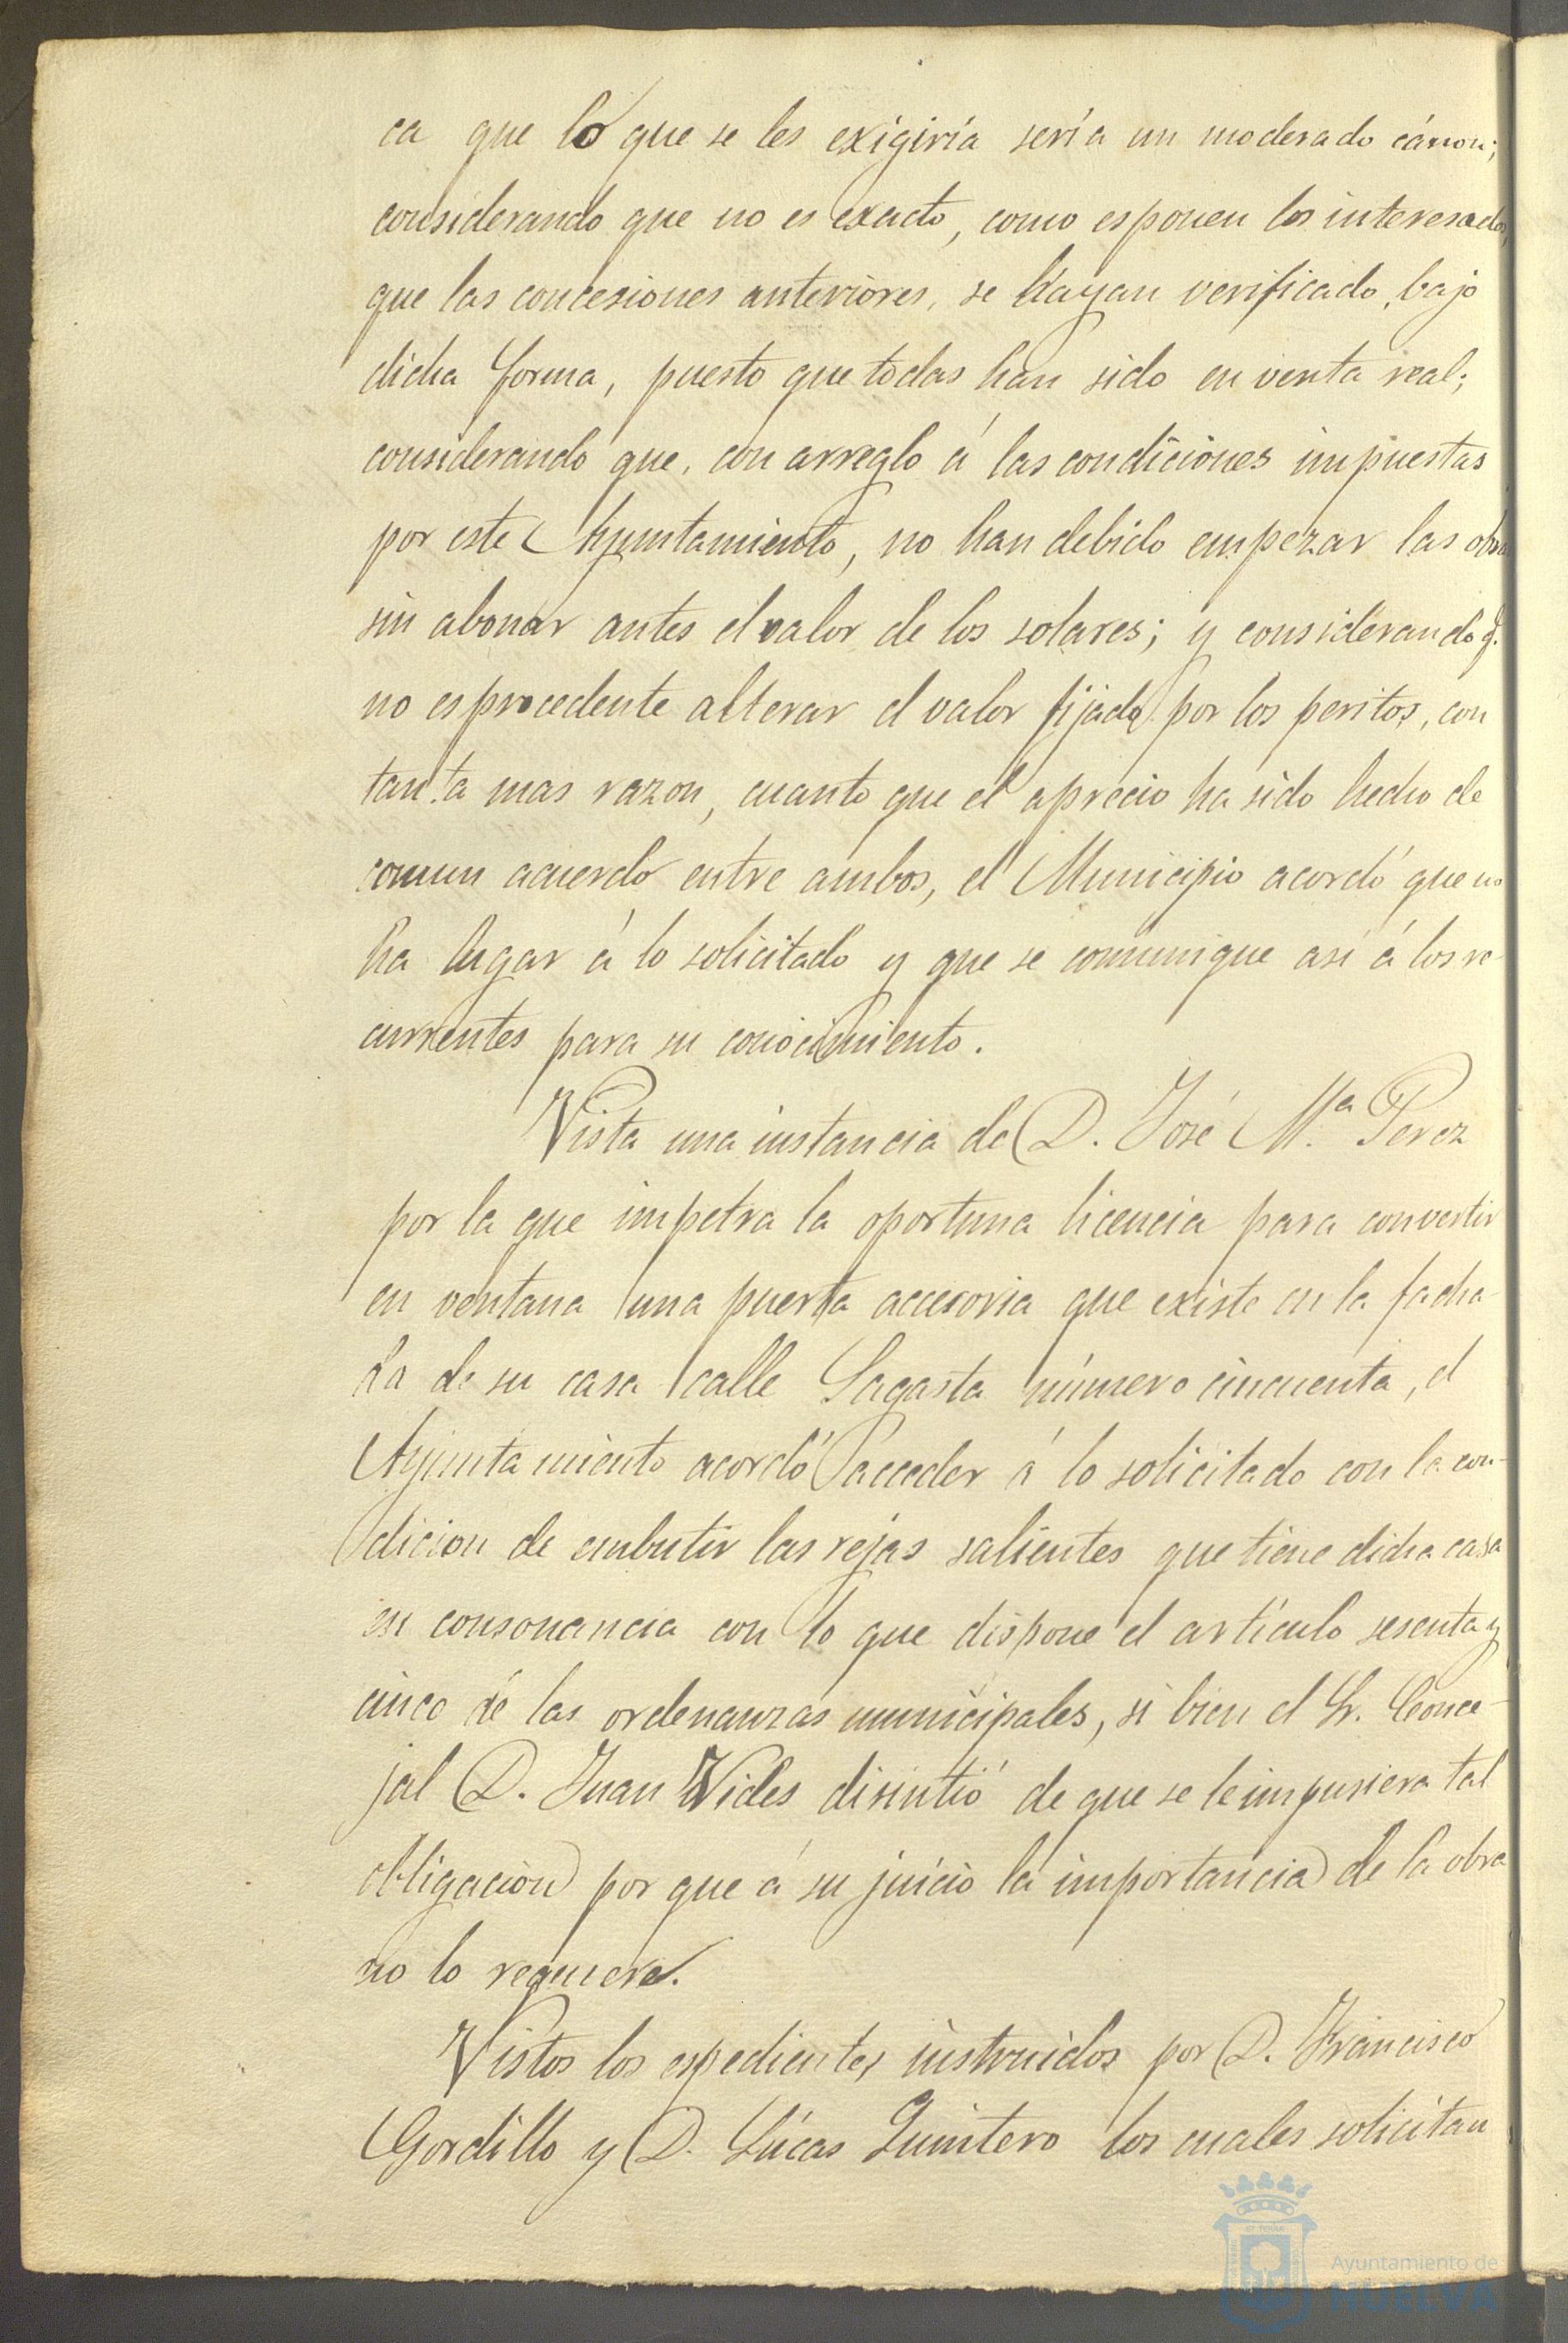 ca que lo que se les exigiria sería un moderado cánon;
considerando que no es exacto, como esponen los interesados,
que las concesiones anteriores, se hayan verificado bajo
dicha forma, puesto que todas han sido en venta real;
considerando que, con arreglo á las condiciones impuestas
por este Ayuntamiento, no han debido empezar las obras
sin abonar antes el valor de los solares; y considerando q.
no es procedente alterar el valor fijado por los peritos, con
tanta mas razon, cuanto que el aprecio ha sido hecho de
comun acuerdo entre ambos, el Municipio acordó que no
ha lugar á lo solicitado y que se comunique asi á los re-
currentes para su conocimiento.
Vista una instancia de D. José M.ª Perez
por la que impetra la oportuna licencia para convertir
en ventana una puerta accesoria que existe en la facha-
da de su casa calle Sagasta número cincuenta, el
Ayuntamiento acordó acceder á lo solicitado con la con-
dicion de embutir las rejas salientes que tiene dicha casa
en consonancia con lo que dispone el artículo sesenta y
cinco de las ordenanzas municipales, si bien el Sr. Conce-
jal D. Juan Vides disintió de que se le impusiera tal
obligacion por que á su juicio la importancia de la obra
no lo requiere.
Vistos los espedientes instruidos por D. Francisco
Gordillo y D. Lúcas Quintero los cuales solicitan
Ayuntamiento de
HUELVA